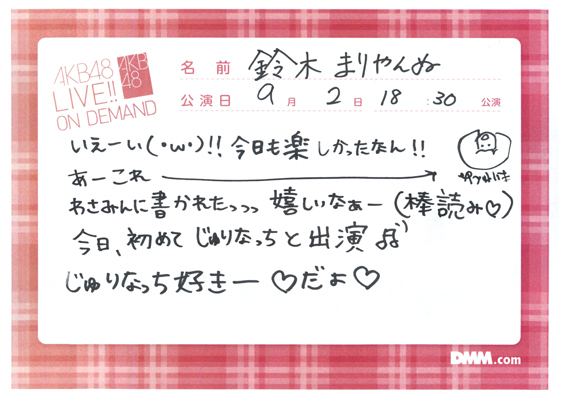 AKB48
LIVE!!
ON DEMAND
AKB
48
名前 鈴木まりやんぬ
公演日 9月2日18:30公演
いえーい(・ω・)!! 今日も楽しかったなん!!
あーこれ
わさみんに書かれたっっっ 嬉しいなぁー(棒読み♡)
今日、初めてじゅりなっちと出演♫
じゅりなっち好きー♡だよ♡
DMM.com